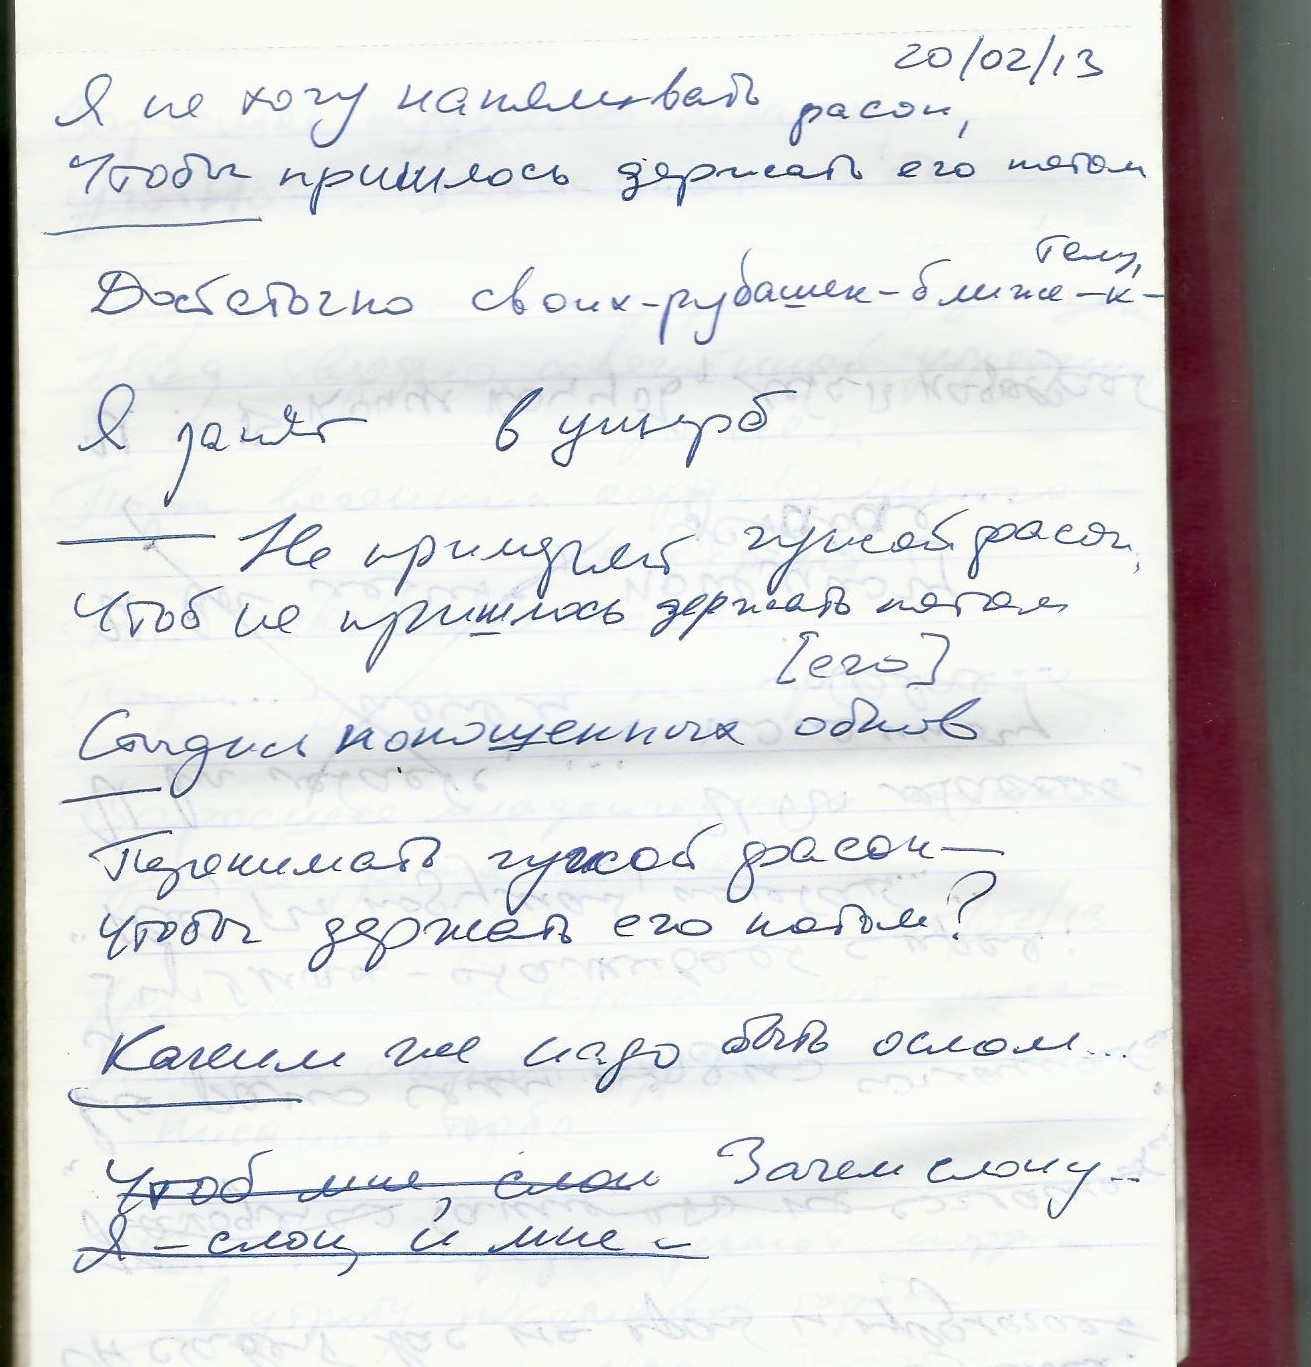 20/02/13
Я не хочу напяливать фасон,
Чтобы пришлось держать его потом
Достаточно своих-рубашек-ближе-к-
телу,
Я занят в ущерб
Не примерять чужой фасон,
Чтоб не пришлось держать потом
[его]
Стыдил поношенных обнов
Перенимать чужой фасон—
Чтобы держать его потом?
Каким же надо быть ослом...
Чтоб мне, слон Зачем слону...
Я – слон, и мне –